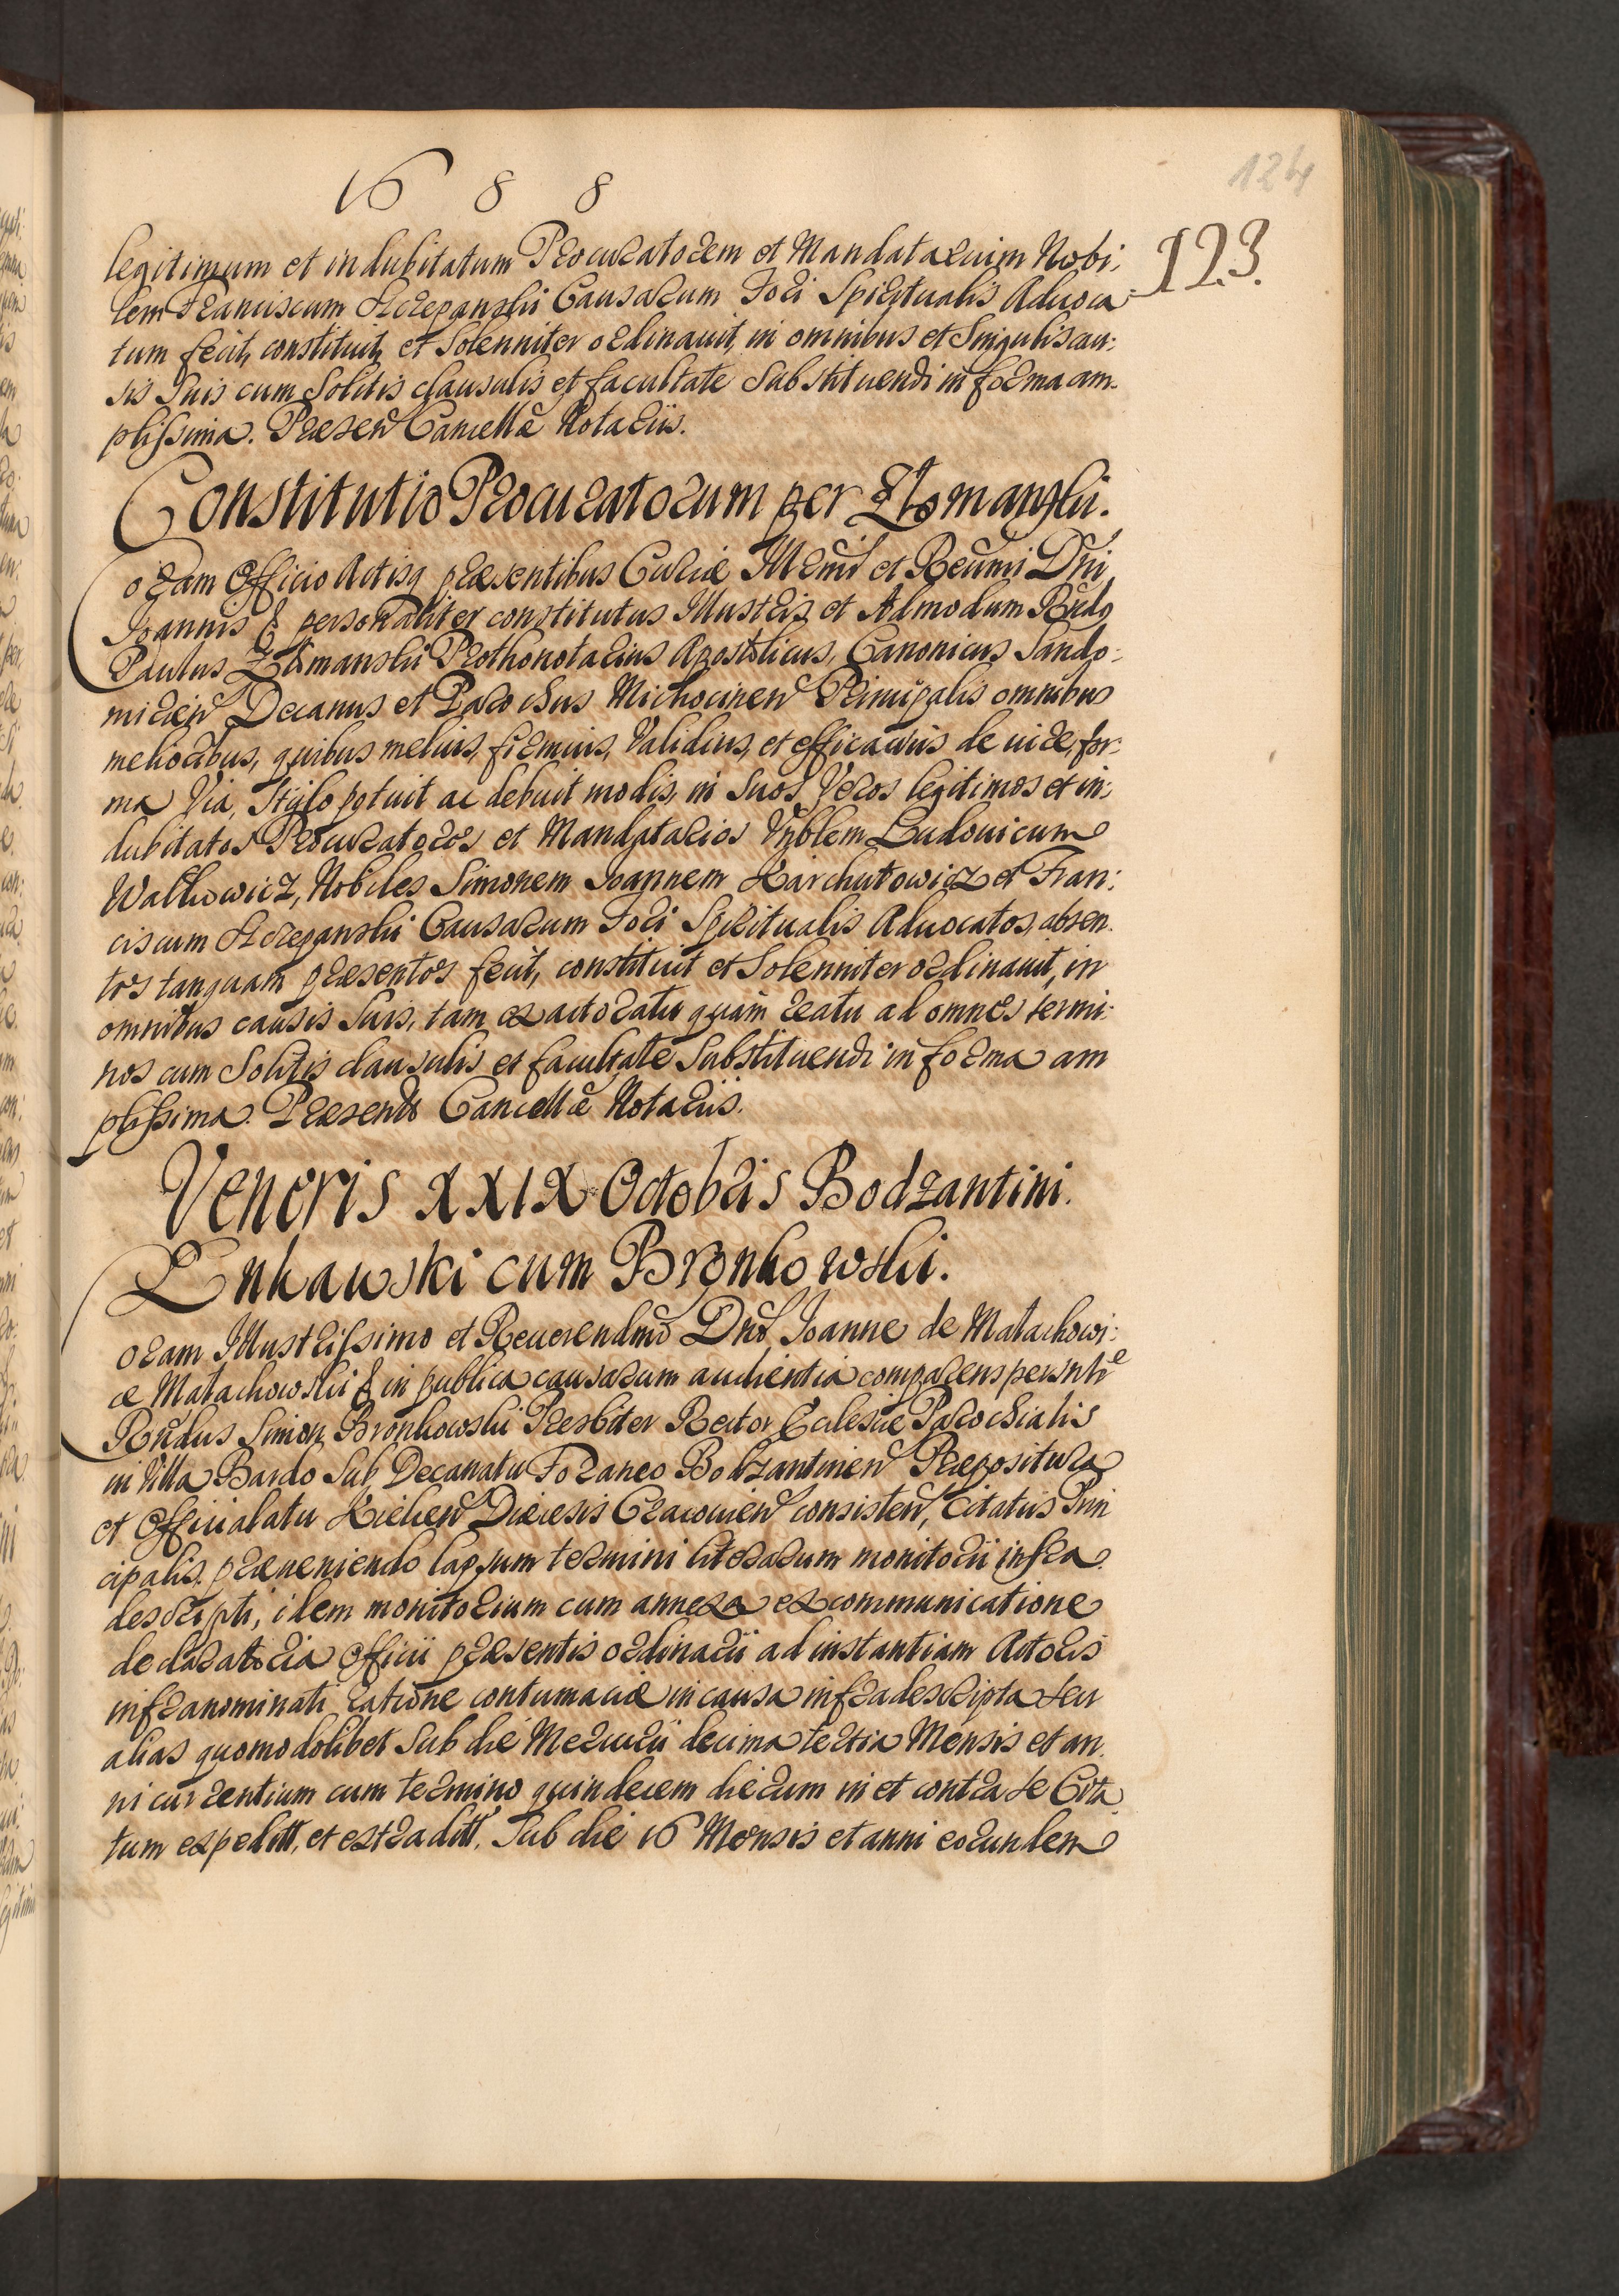 1688
124
123.
legitimum et indubitatum Procuratorem et Mandatarium Nobi:
lem Franciscum Szczepanski Causarum Fori Spiritualis Aduoca
tum fecit, constituit, et Solenniter ordinauit, in omnibus et Singulis cau:
sis Suis cum Solitis clausulis et facultate Substituendi in forma am:
plissima. Præsen Cancellæ Notariis.
Constitutio Procuratorum per Złomanski.
Coram Officio Actisq præsentibus Curiæ Illrmi et Reumi Dni
Joannis & personaliter constitutus Illustris et Admodum Rndo
Paulus Złomanski Prothonotarius Apostolicus, Canonicus Sando:
mirien Decanus et Parochus Michocinen Principalis omnibus
melioribus, quibus melius, firmius, Validius, et efficacius de iure, for:
ma Via, Stylo potuit ac debuit modis, in Suos Veros legitimos et in:
dubitatos Procuratores et Mandatarios Vnblem Ludouicum
Walkowicz, Nobiles Simonem Joannem Karchutowicz et Fran:
ciscum Szczepanski Causarum Fori Spiritualis Aduocatos, absen
tes tanquam præsentes fecit, constituit et Solenniter ordinauit, in
omnibus causis Suis, tam ex actoratu quam reatu ad omnes termi:
nos cum Solitis clausulis et facultate Substituendi in forma am
plissima. Præsente Cancellæ Notariis.
Veneris XXIX Octobris Bodzantini.
Łukawski cum Bronkowski.
Coram Illustrissimo et Reuerendmo Dno Joanne de Małachowi:
ce Małachowski & in publica causarum audientia comparens persnlre
Rndus Simon Bronkowski Presbiter Rector Ecclesiæ Parochialis
in Villa Bardo Sub Decanatu Foraneo Bodzantinen Præpositura
et Officialatu Kielcen Diæcesis Cracouien consisten, Citatus Prin
cipalis. præueniendo lapsum termini literarum monitorii infra
descripti, idem monitorium cum annexa excommunicatione
declaratoria Officii præsentis ordinarii ad instantiam Actoris
infranominati ratione contumaciæ in causa infradescripta seu
alias quomodolibet Sub die Mercurii decima tertia Mensis et an
ni currentium cum termino quindecem dierum in et contra se Cita
tum expeditt, et extraditt, Sub die 16 Mensis et anni eorundem